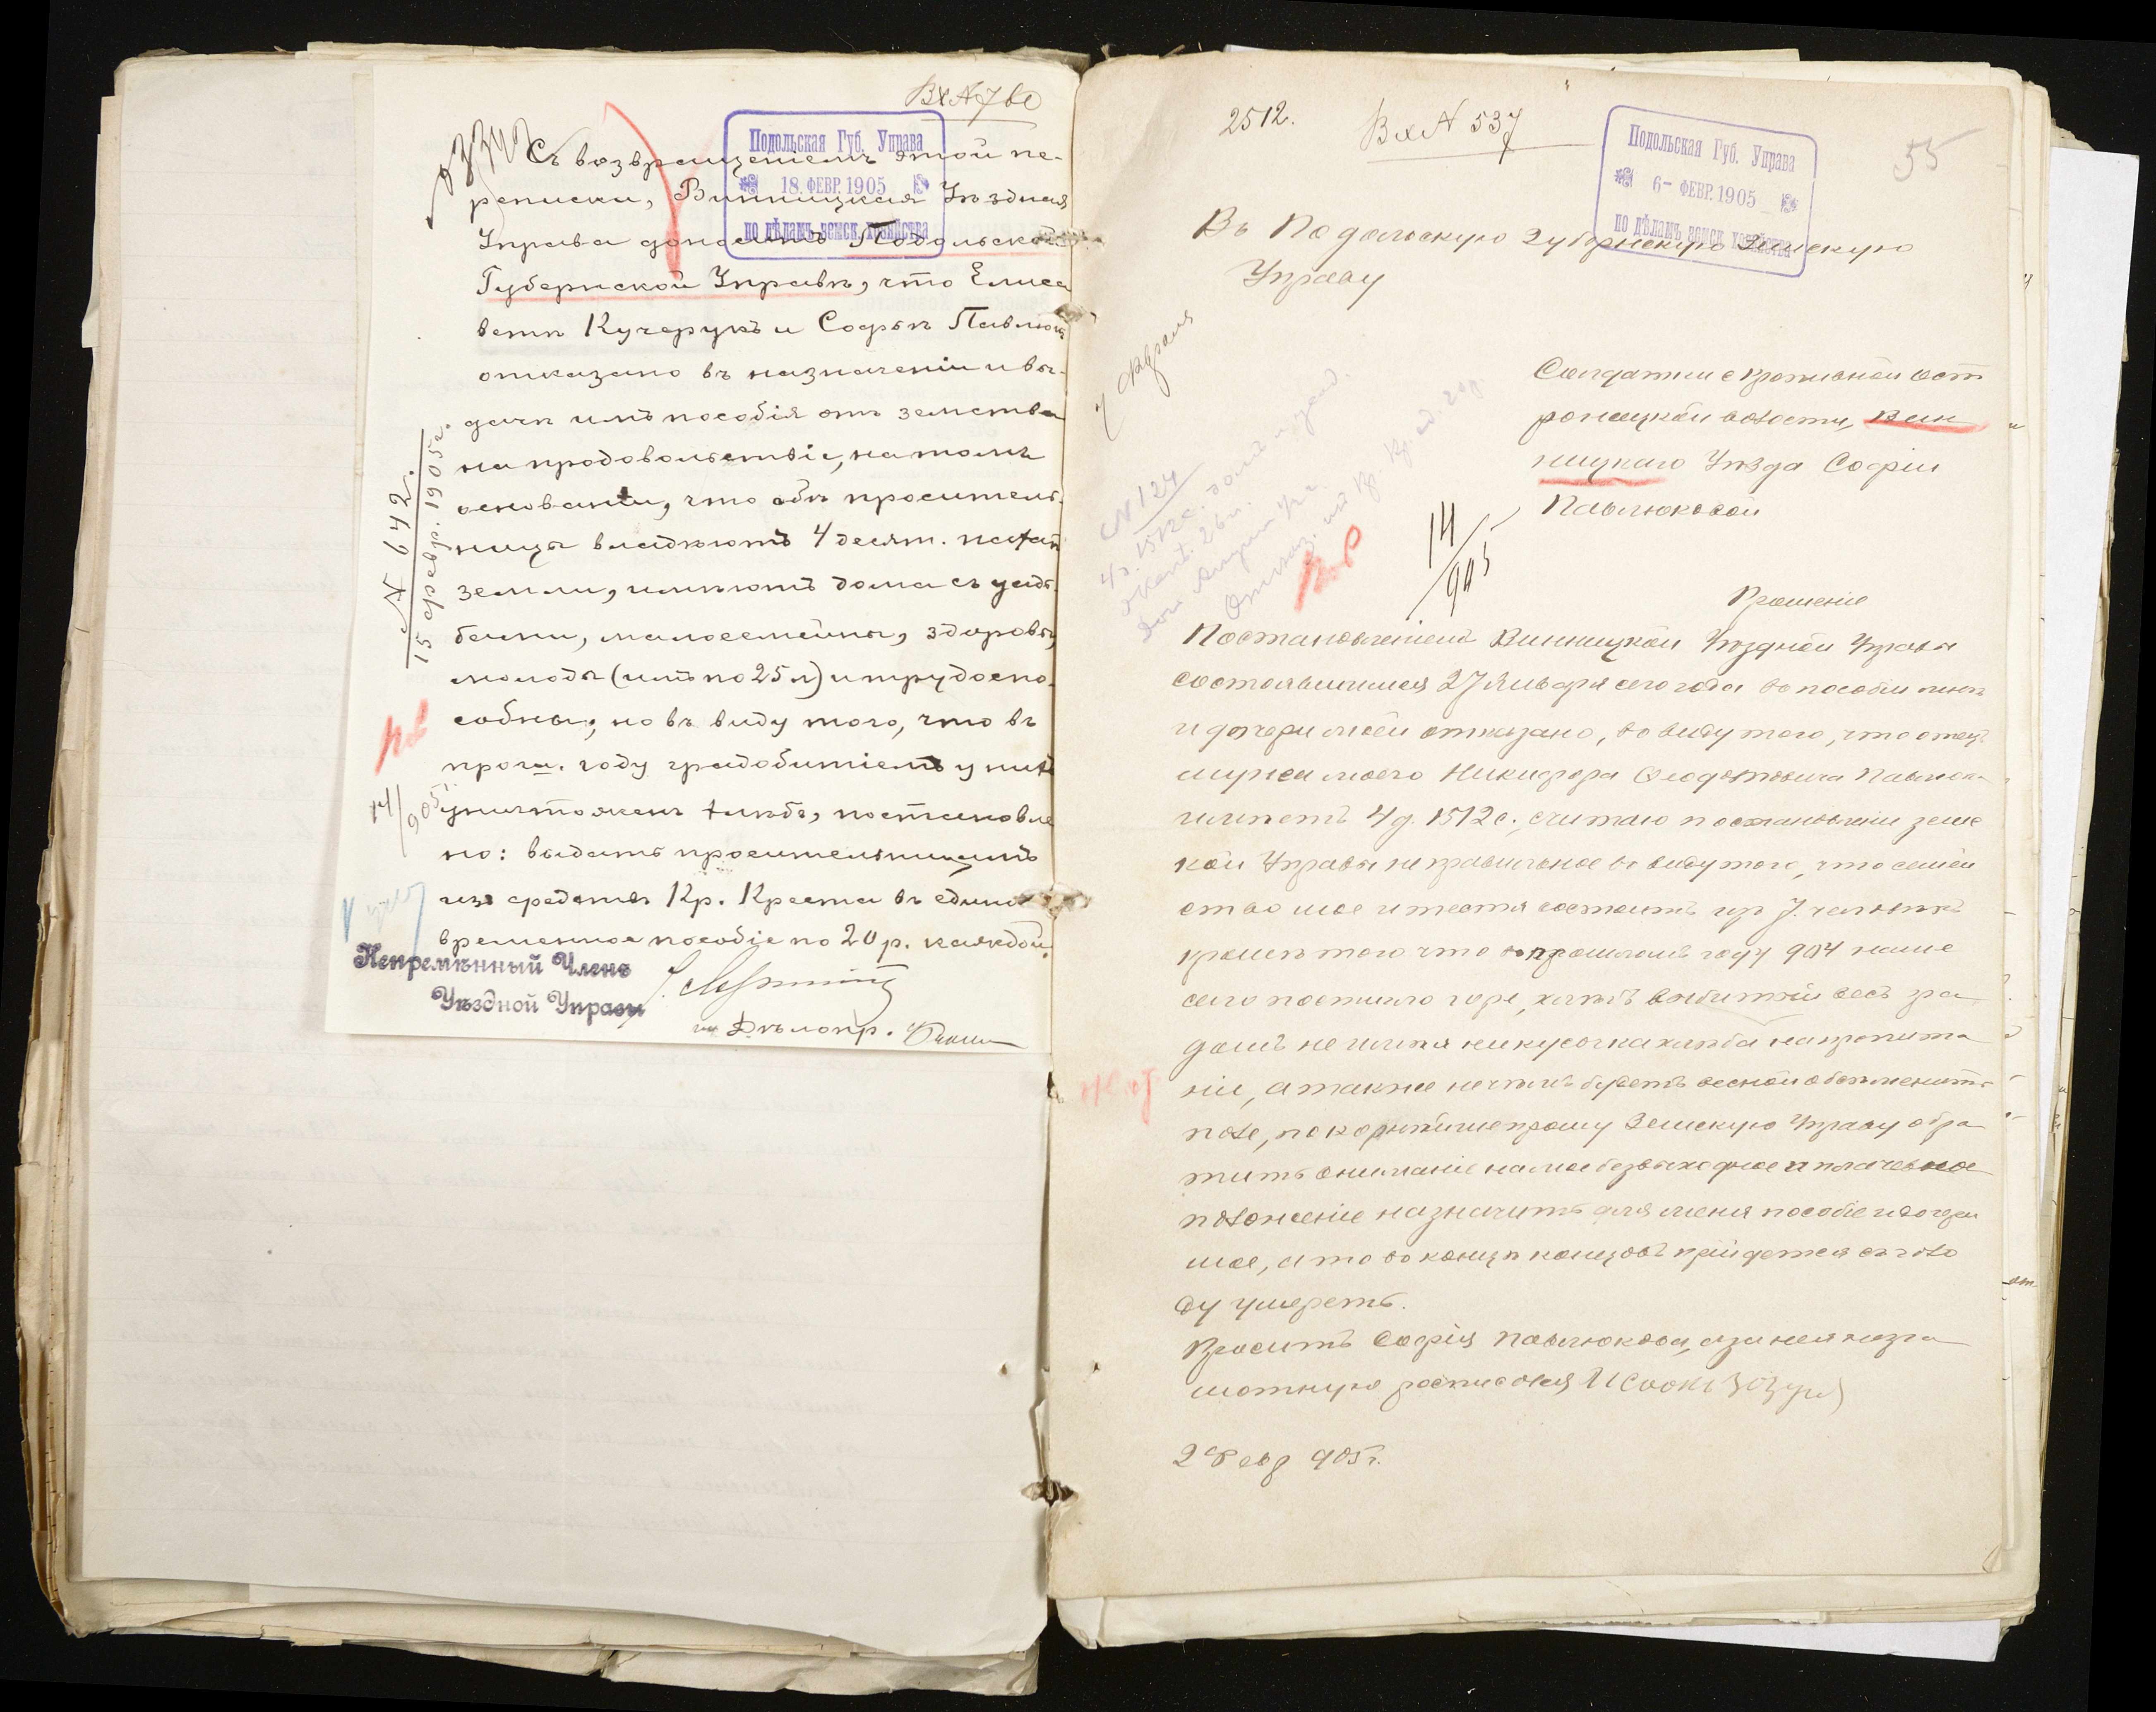 Вх № 760
Подольская Губ. Управа
18. ФЕВР. 1905
по дѣламъ земск. хозяйства
Съ возвращеніемъ этой пе-
реписки, Винницкая Уѣздная
Управа доноситъ Подольской
Губернской Управѣ, что Елиса
ветѣ Кучерукъ и Софіи Павлюкъ
отказано въ назначеніи и вы-
дачѣ имъ пособія отъ земства
на продовольствіе, на томъ
основаніи, что обѣ проситель-
ницы владѣютъ 4 десят. пахатн
земли, имѣютъ дома съ усадь
бами, малосемейны, здоровы,
молоды (имъ по 25 л) и трудоспо-
собны; но въ виду того, что въ
прош. году градобитіемъ у нихъ
уничтоженъ хлѣбъ, постановле
но: выдать просительницамъ
изъ средствъ Кр. Креста въ едино
временное пособіе по 20 р. каждой.
Непремѣнный Членъ
Уѣздной Управы
Дѣлопр.
№ 642.
15 февр. 1905 г.
14/905
2512.
Вх № 537
Подольская Губ. Управа
6- ФЕВР. 1905
по дѣламъ земск. хозяйства
55
Въ Подольскую Губернскую Земскую
Управу
7 Февраля
Солдатки с Кропивной Вот
ронецкой волости, Вин
ницкаго Уѣзда Софіи
Павлюковой
№ 124
14/905
Прошеніе
Постановленіемъ Винницкой Уѣздной Управы
состоявшимся 27 Января сего года въ пособіи мнѣ
и дочери моей отказано, въ виду того, что отецъ
мужа моего Никифора Феодотовича Павлюка
имѣетъ 4 д. 1512 с., считаю постановленіи земс
кой Управы неправильное въ виду того, что семей
ство мое и тестя состоитъ изъ 7. человѣкъ
кромѣ того что въ прошломъ году 904 наше
село постигло горе, хлѣбъ выбитый весь гра
домъ не имѣя ни кусочка хлѣба на пропита
ніе, а также нечѣмъ будетъ весной обсѣменить
поле, покорнѣйше прошу Земскую Управу обра
тить вниманіе на мое безвыходное и плачевное
положеніе назначить для меня пособіе и дочери
мое, а то въ концѣ концовъ прійдется съ голо
ду умереть.
Проситъ Софія Павлюкова, а за нея негра
мотную росписался
2 Февр 905 г.